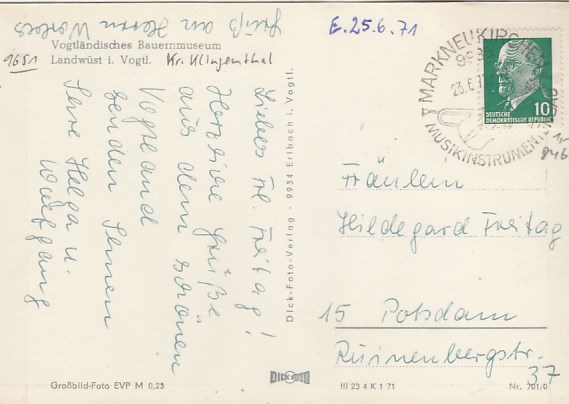 Gruß an Herrn Worlees
Vogtländisches Bauernmuseum
Landwüst i. Vogtl. Kr. Klingenthal
1651
Liebes Frl. Freitag!
Herzliche Grüße
aus dem schönen
Vogtland
senden Ihnen
Ihre Helga u.
Wolfgang
Großbild-Foto EVP M 0,25
Dick-Foto-Verlag - 9934 Erlbach i. Vogtl.
DICK FOTO
E. 25.6.71
MARKNEUKIRCHEN
23.6.71
MUSIKINSTRUMENTE
10
DEUTSCHE
DEMOKRATISCHE REPUBLIK
846
Fräulein
Hildegard Freitag
15 Potsdam
Ruinenbergstr.
37
III 23 4 K 1 71
Nr. 701/0